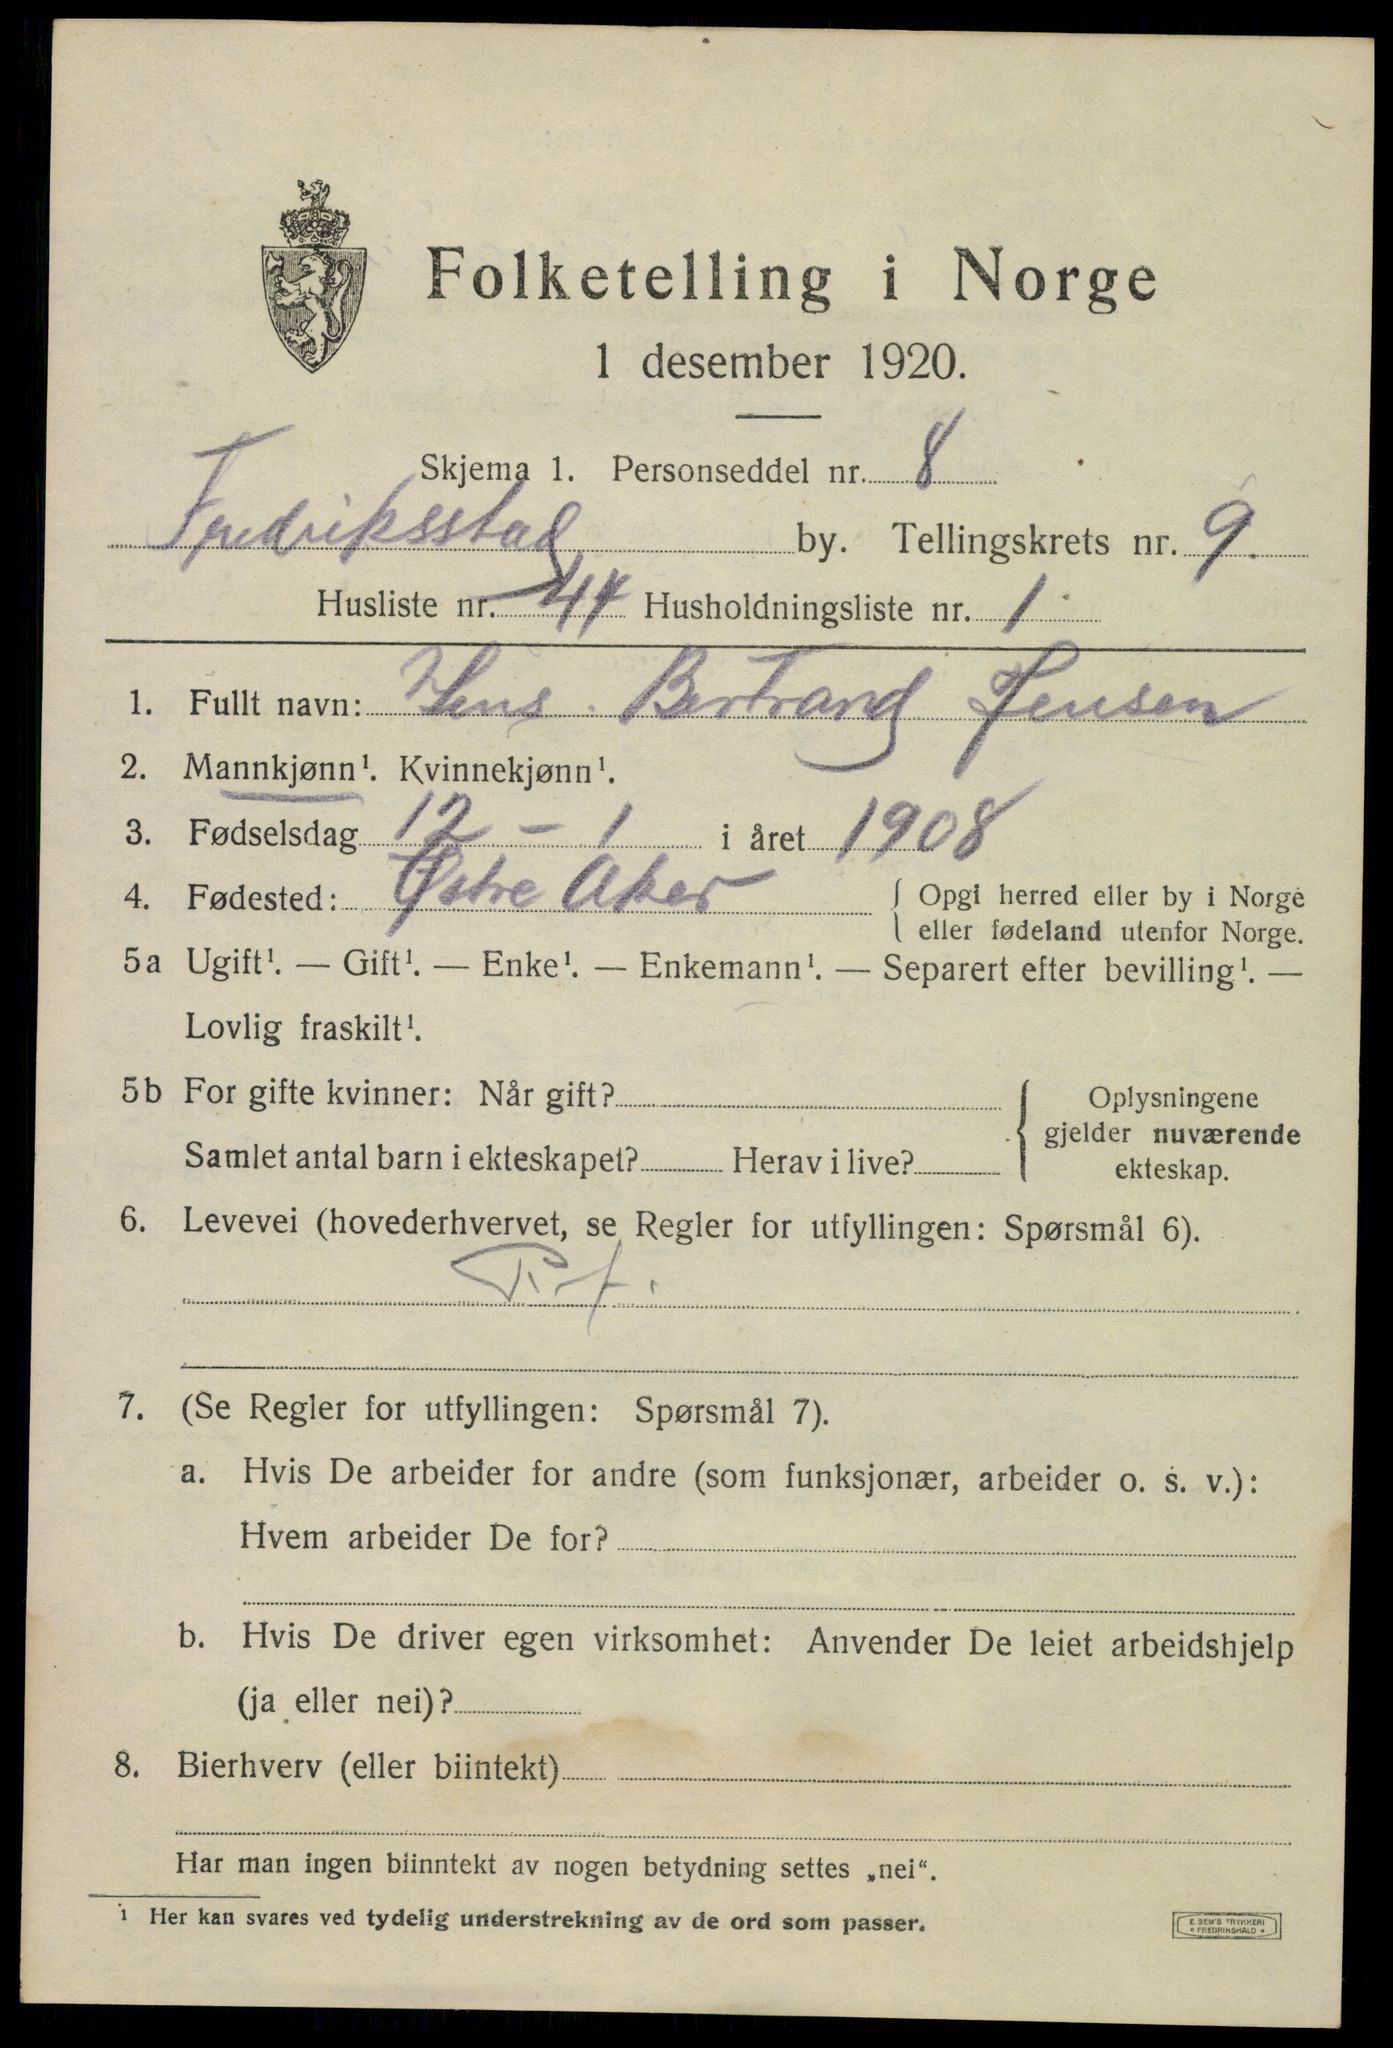 Folketelling i Norge
1 desember 1920.
Skjema 1. Personseddel nr. 8
Fredriksstad by. Tellingskrets nr. 9.
Husliste nr. 44 Husholdningsliste nr. 1
1. Fullt navn: Jens Bertrand Jensen
2. Mannkjønn¹. Kvinnekjønn¹.
3. Fødselsdag 12 – 1 i året 1908
4. Fødested: Østre Aker { Opgi herred eller by i Norge
{ eller fødeland utenfor Norge.
5a Ugift¹. — Gift¹. — Enke¹. — Enkemann¹. — Separert efter bevilling¹. —
Lovlig fraskilt¹.
5b For gifte kvinner: Når gift? { Oplysningene
gjelder nuværende
Samlet antal barn i ekteskapet? Herav i live? ekteskap.
6. Levevei (hovederhvervet, se Regler for utfyllingen: Spørsmål 6).
7. (Se Regler for utfyllingen: Spørsmål 7).
a. Hvis De arbeider for andre (som funksjonær, arbeider o. s. v.):
Hvem arbeider De for?
b. Hvis De driver egen virksomhet: Anvender De leiet arbeidshjelp
(ja eller nei)?
8. Bierhverv (eller biintekt)
Har man ingen biinntekt av nogen betydning settes „nei“.
¹ Her kan svares ved tydelig understrekning av de ord som passer.
E. SEM'S TRYKKERI
* FREDRIKSHALD *